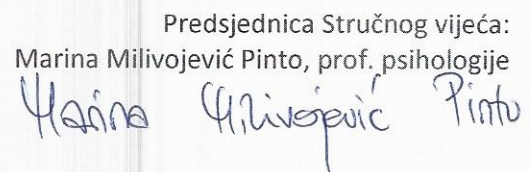 Predsjednica Stručnog vijeća:
Marina Milivojević Pinto, prof. psihologije
Marina Milivojević Pinto